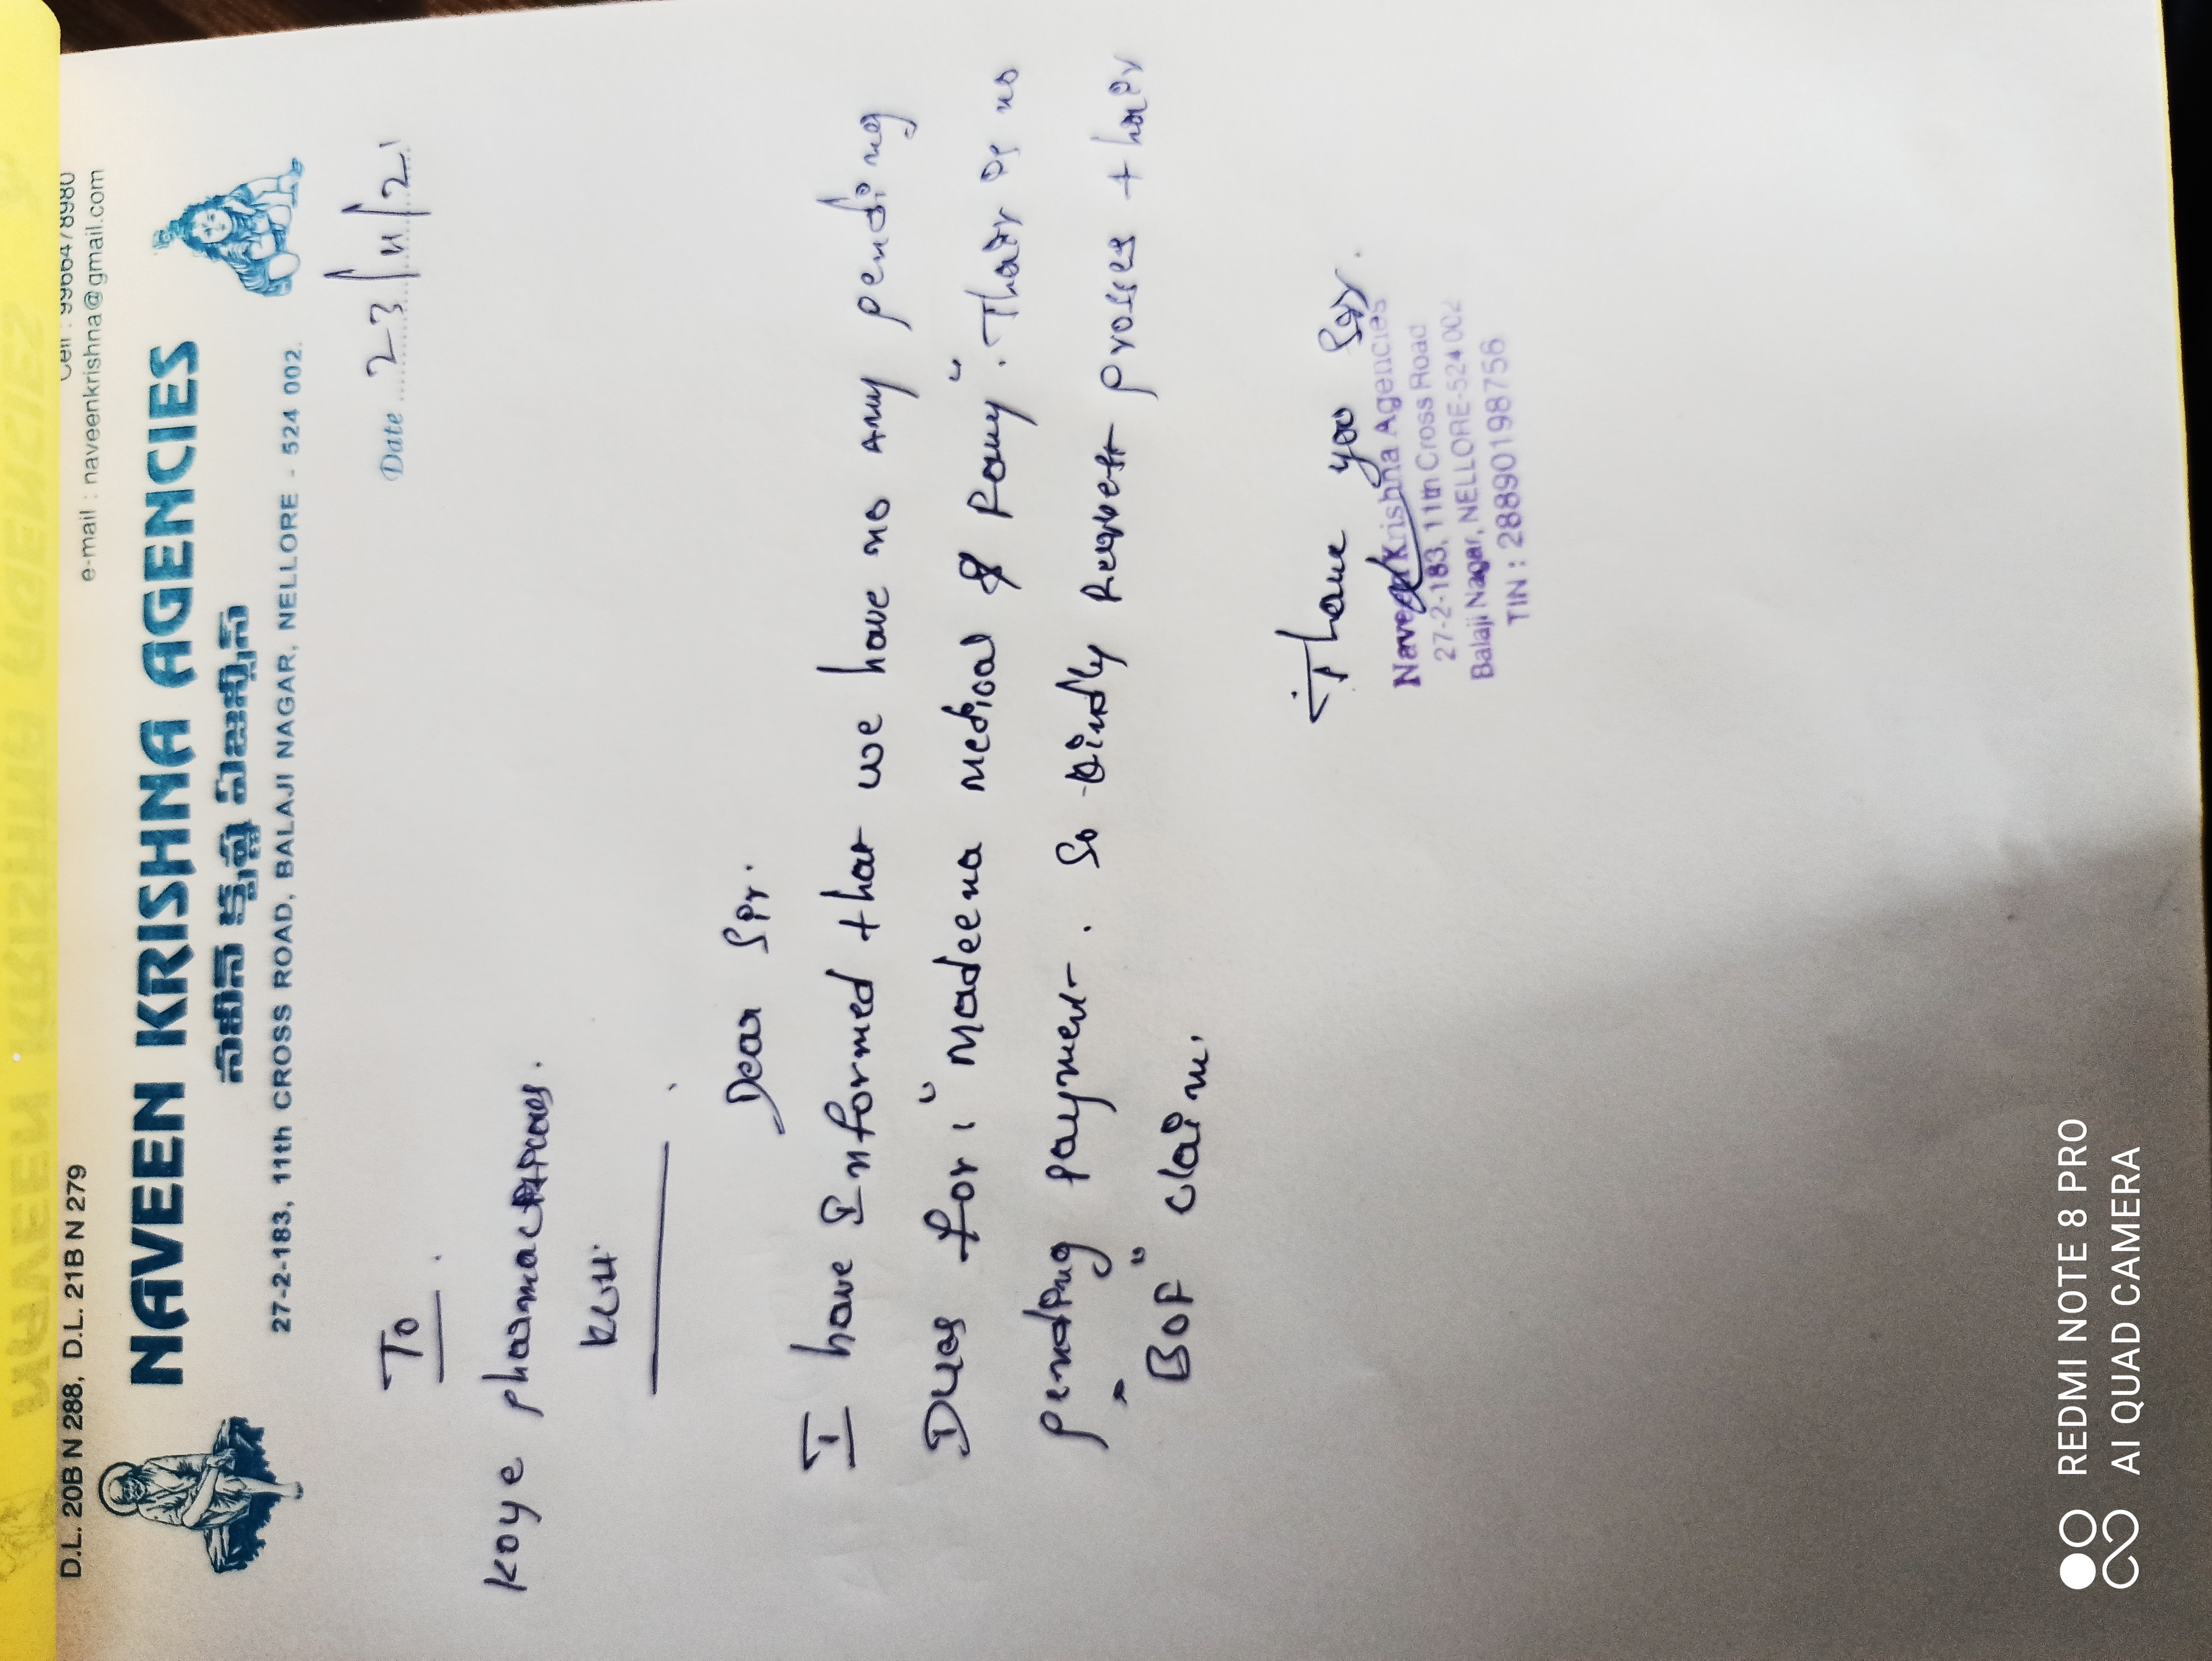 D.L. 20B N 288, D.L. 21B N 279
e-mail : naveenkrishna@gmail.com
NAVEEN KRISHNA AGENCIES
నవీన్ క్రిష్ణ ఏజెన్సీస్
27-2-183, 11th CROSS ROAD, BALAJI NAGAR, NELLORE - 524 002.
Date 23/11/21
To
Koye
Dear Sir.
I have Informed that we have no any pending
Dues for "Madeena medical & Fancy". Thair is no
pending payment. So kindly Request prosses thair
"BOF" claim.
Thank you Sir.
Naveen Krishna Agencies
27-2-183, 11th Cross Road
Balaji Nagar, NELLORE-524 002
TIN : 28890198756
REDMI NOTE 8 PRO
AI QUAD CAMERA